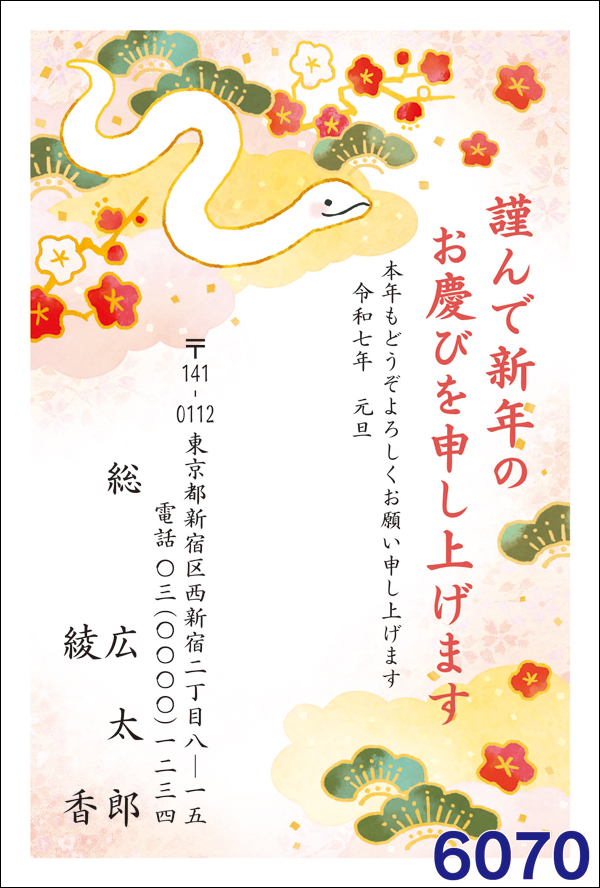 謹んで新年の
お慶びを申し上げます
本年もどうぞよろしくお願い申し上げます
令和七年 元旦
〒141-0112 東京都新宿区西新宿二丁目八―一五
電話 〇三(〇〇〇〇)一二三四
総 広太郎
綾香
6070